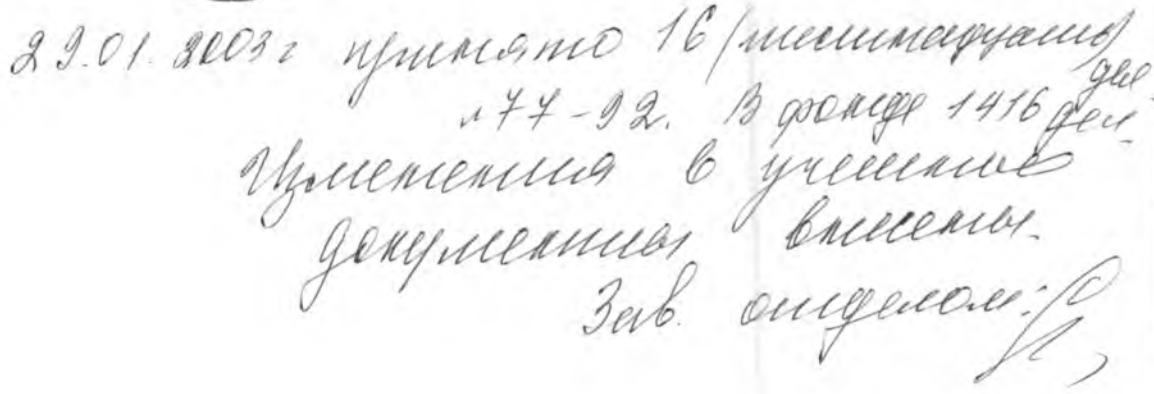 29.01.2003 г принято 16 (шестнадцать)
дел
№77-92. В фонде 1416 дел.
Изменения в учетные
документы внесены.
Зав. отделом: